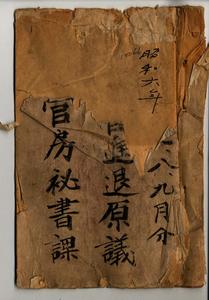 昭和六年
八、九月分
進退原議
官房秘書課